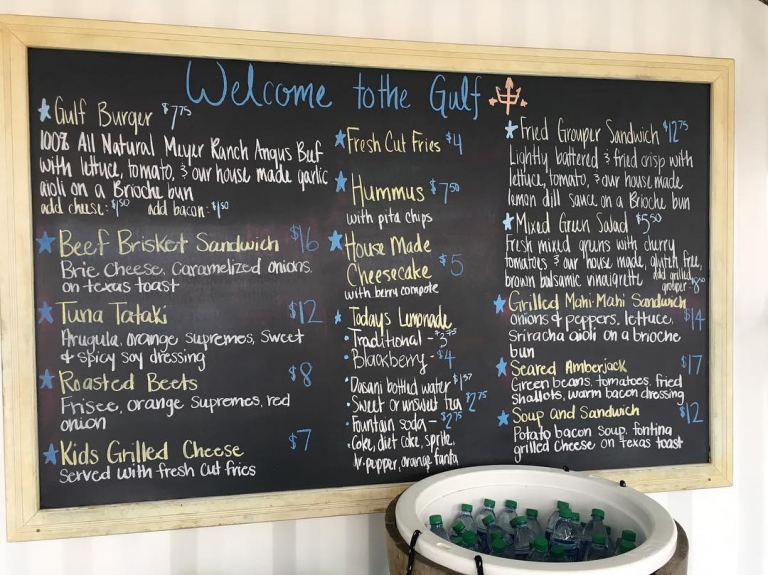 Welcome to the Gulf
★ Gulf Burger $7.75
100% All Natural Meyer Ranch Angus Beef
with lettuce, tomato, & our house made garlic
aioli on a Brioche bun
add cheese: $1.50 add bacon: $1.50
★ Beef Brisket Sandwich $16
Brie Cheese, Caramelized onions,
on texas toast
★ Tuna Tataki $12
Arugula, orange supremes, sweet
& spicy soy dressing
★ Roasted Beets $8
Frisee, orange supremes, red
onion
★ Kids Grilled Cheese $7
Served with fresh cut fries
★ Fresh Cut Fries $4
★ Hummus $7.50
with pita chips
★ House Made
Cheesecake $5
with berry compote
★ Today's Lemonade
• Traditional - $3.75
• Blackberry - $4
• Dasani bottled water $1.50
• Sweet or unsweet tea $2.75
• Fountain soda - $2.75
• Coke, diet coke, sprite,
dr. pepper, orange fanta
★ Fried Grouper Sandwich $12.75
Lightly battered & fried crisp with
lettuce, tomato, & our house made
lemon dill sauce on a Brioche bun
★ Mixed Green Salad $5.50
Fresh mixed greens with cherry
tomatoes & our house made, gluten free,
brown balsamic vinaigrette add grilled
grouper: $8
★ Grilled Mahi-Mahi Sandwich $14
onions & peppers, lettuce,
Sriracha aioli on a brioche
bun
★ Seared Amberjack $17
Green beans, tomatoes, fried
shallots, warm bacon dressing
★ Soup and Sandwich $12
Potato bacon soup, fontina
grilled cheese on texas toast